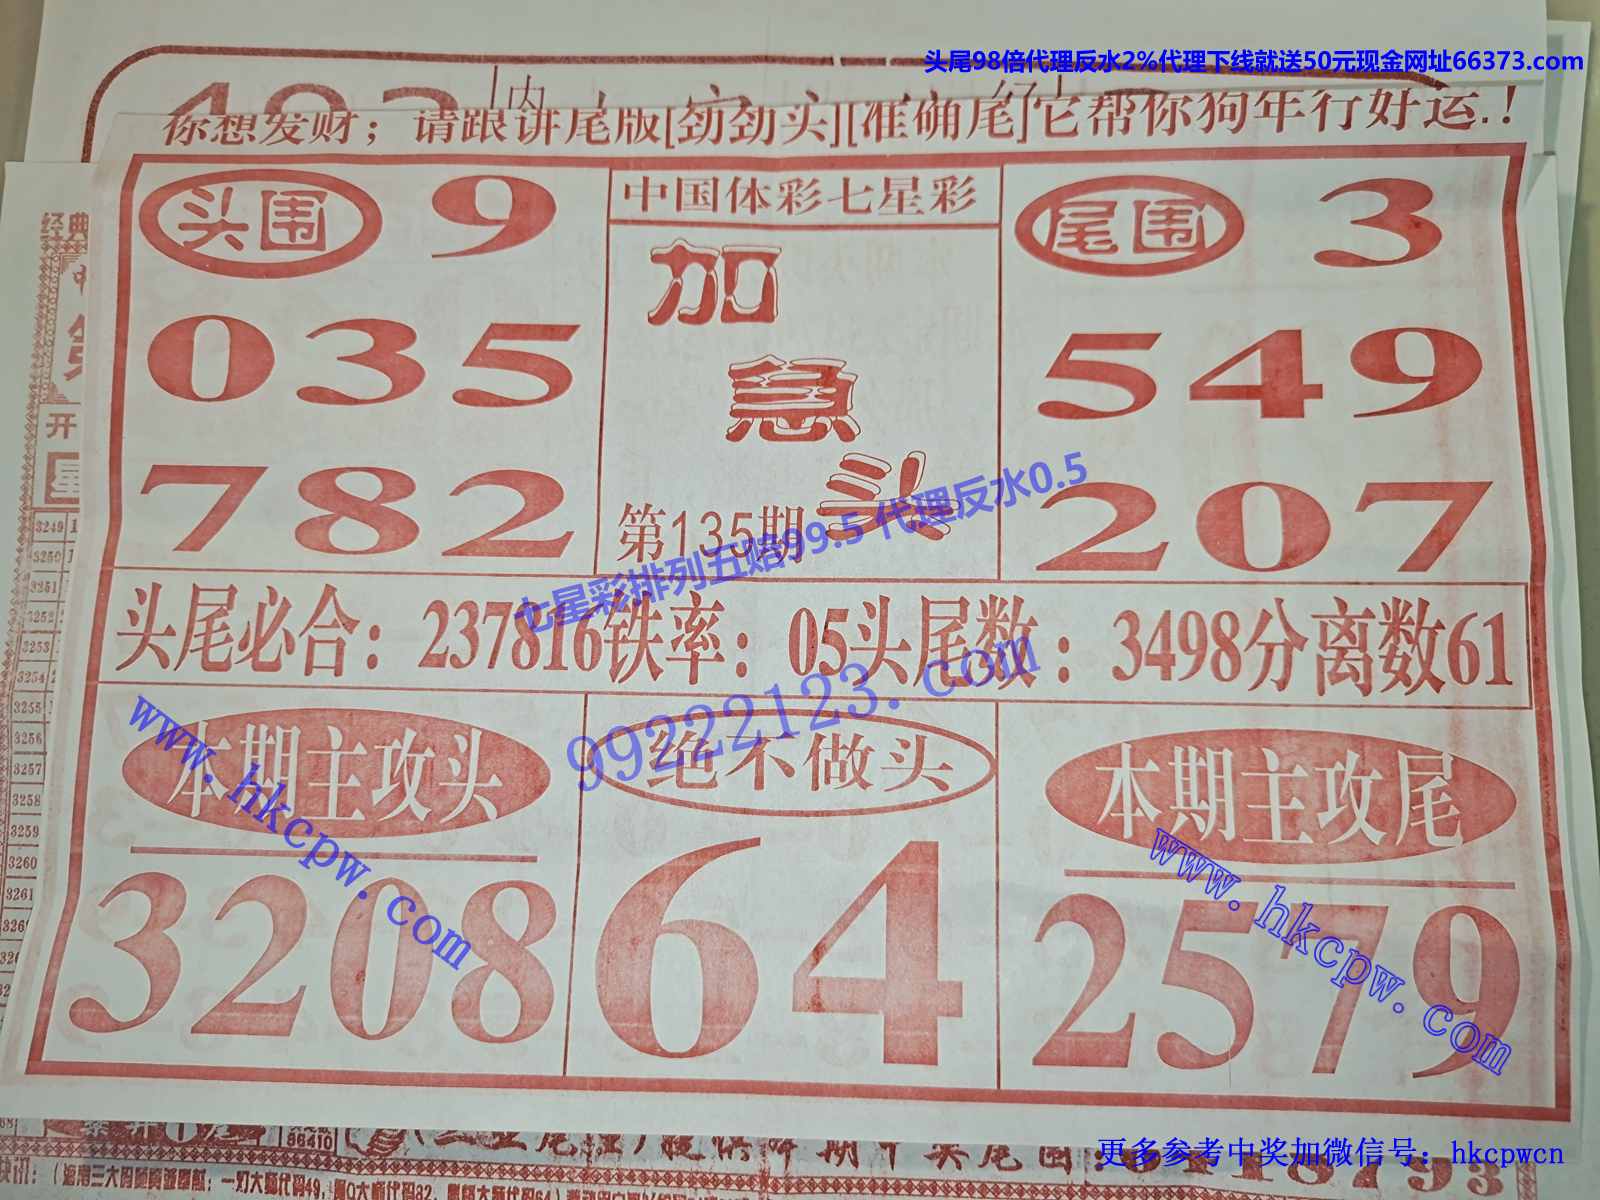 头尾98倍代理反水2%代理下线就送50元现金网址66373.com
你想发财；请跟讲尾版[劲劲头][准确尾]它帮你狗年行好运.!
头围 9
035
782
中国体彩七星彩
加
急
头
第135期
尾围 3
549
207
七星彩排列五赔99.5 代理反水0.5
头尾必合：237816铁率：05头尾数：3498分离数61
99222123.com
本期主攻头
3208
绝不做头
64
本期主攻尾
2579
www.hkcpw.com
www.hkcpw.com
经典
开
3249
3250
3251
3252
3253
3254
3255
3256
3257
3258
3259
3260
3261
86410
更多参考中奖加微信号：hkcpwcn